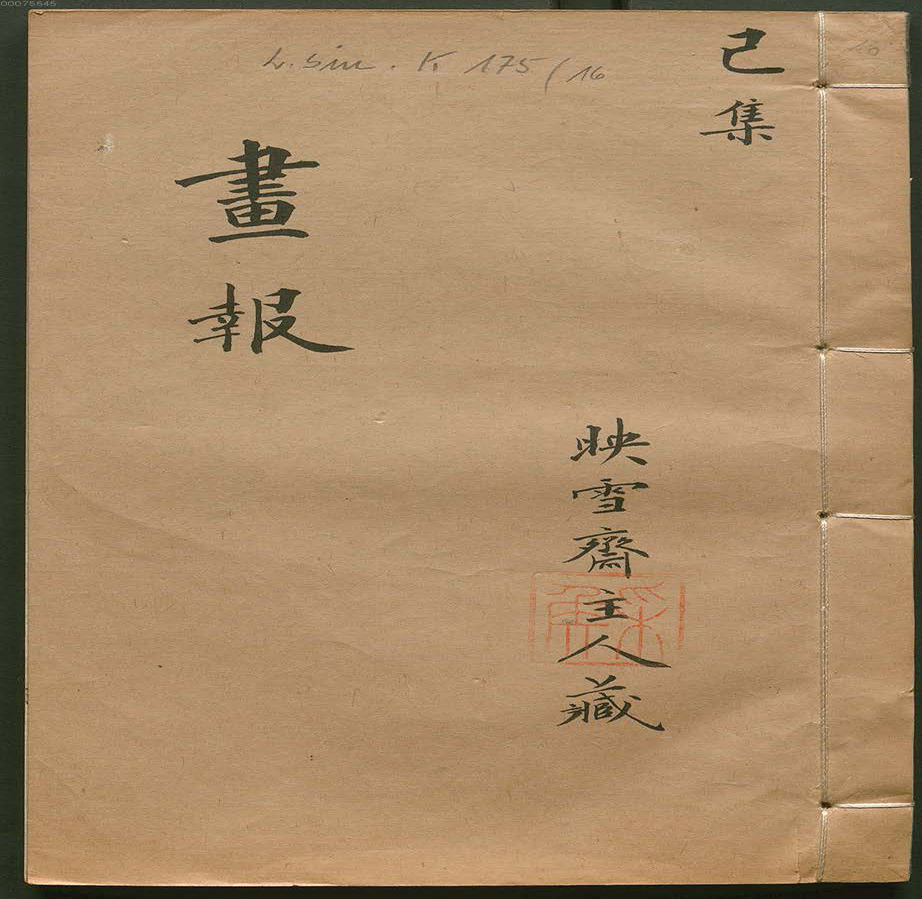 00075645
L. sin. K 175/16
16
己集
畫報
映雪齋主人藏